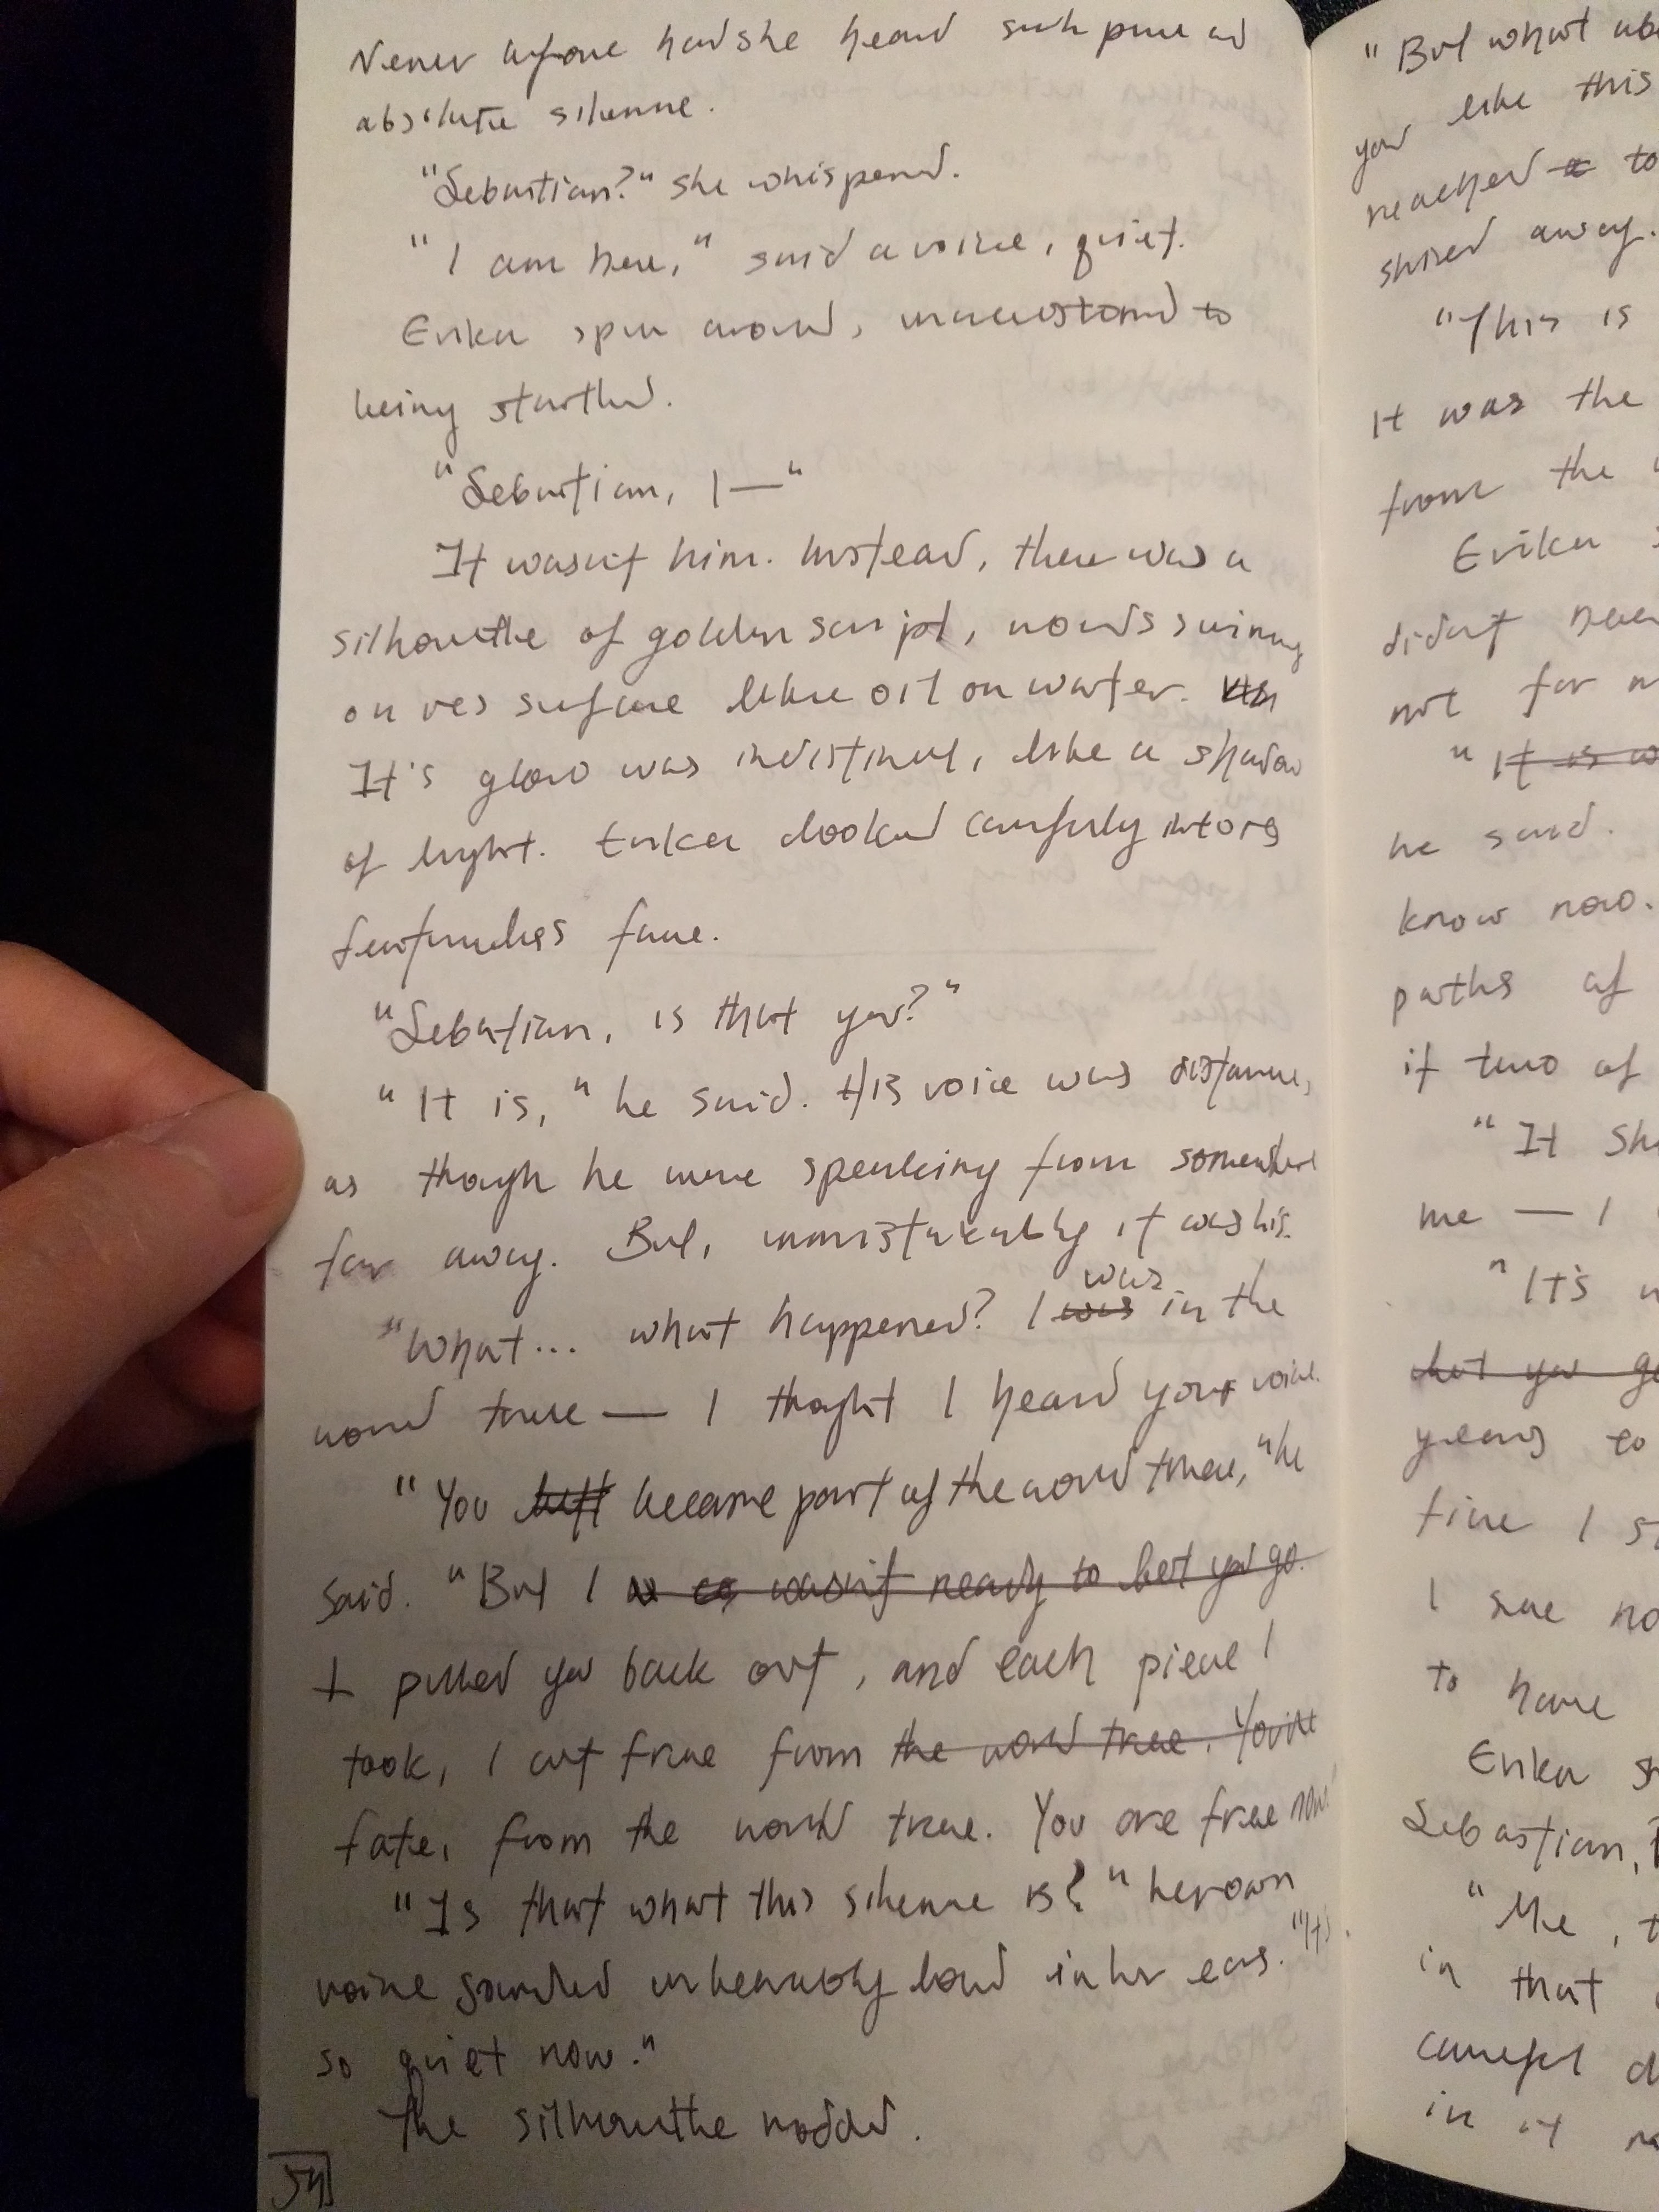 Never before had she heard such pure and
absolute silence.
"Sebastian?" she whispered.
"I am here," said a voice, quiet.
Erika spun around, unaccustomed to
being startled.
"Sebastian, I—"
It wasn't him. Instead, there was a
silhouette of golden script, words swimming
on its surface like oil on water.
It's glow was indistinct, like a shadow
of light. Erika looked carefully into its
featureless face.
"Sebastian, is that you?"
"It is," he said. His voice was distance,
as though he were speaking from somewhere
far away. But, unmistakably it was his.
"What... what happened? I was was in the
world tree — I thought I heard your voice.
"You left became part of the world tree," he
said. "But I wasn't ready to let you go.
I pulled you back out, and each piece I
took, I cut free from the world tree. You're
fate, from the world tree. You are free now
"Is that what this silence is?" her own
voice sounded unbearably loud in her ears. "It's
so quiet now."
The silhouette nodded.
54
"But what abo
you like this
reached to
shied away.
"This is
It was the
from the
Erika
didn't need
not for
"It is w
he said.
know now.
paths of
if two of
"It sh
me — I
"It's
but you go
years to
fine I
I see no
to have
Erika sh
Sebastian,
"Me, t
in that
careful d
in it